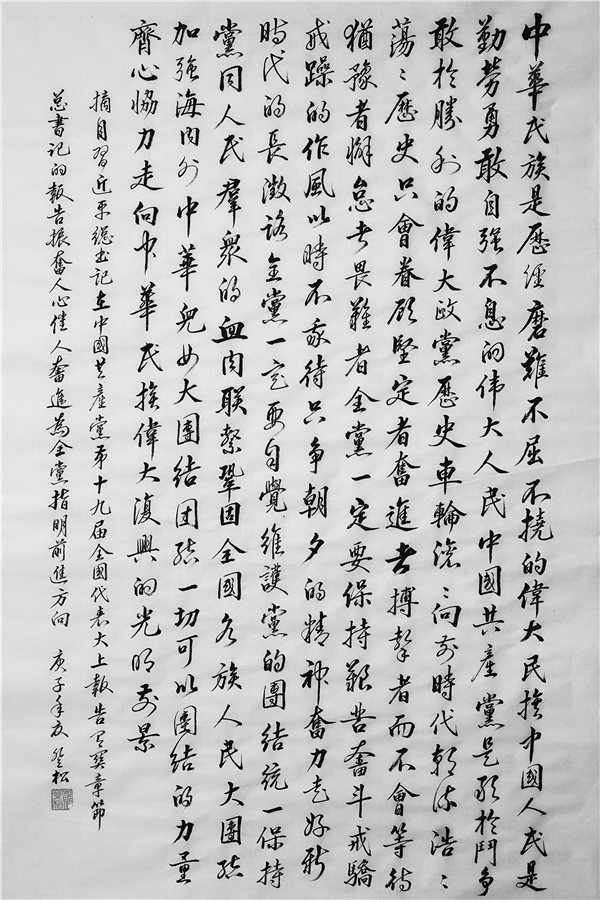 中華民族是歷經磨難不屈不撓的偉大民族中國人民是
勤勞勇敢自强不息的伟大人民中國共產黨是敢於鬥争
敢於勝利的偉大政黨歷史車輪滾〻向前時代潮流浩〻
蕩〻歷史只會眷顧堅定者奮進者搏擊者而不會等待
猶豫者懈怠者畏難者全黨一定要保持艱苦奮斗戒驕
戒躁的作風以時不我待只争朝夕的精神奮力走好新
時代的長徵路全黨一定要自覺維護黨的團結統一保持
黨同人民羣衆的血肉联繫鞏固全國各族人民大團結
加强海内外中華兒女大團結团結一切可以團結的力量
齊心協力走向中華民族偉大復興的光明前景
摘自習近平總書記在中國共產黨第十九届全國代表大上報告有關章節
总書記的報告振奮人心催人奮進為全黨指明前進方向 庚子年 松